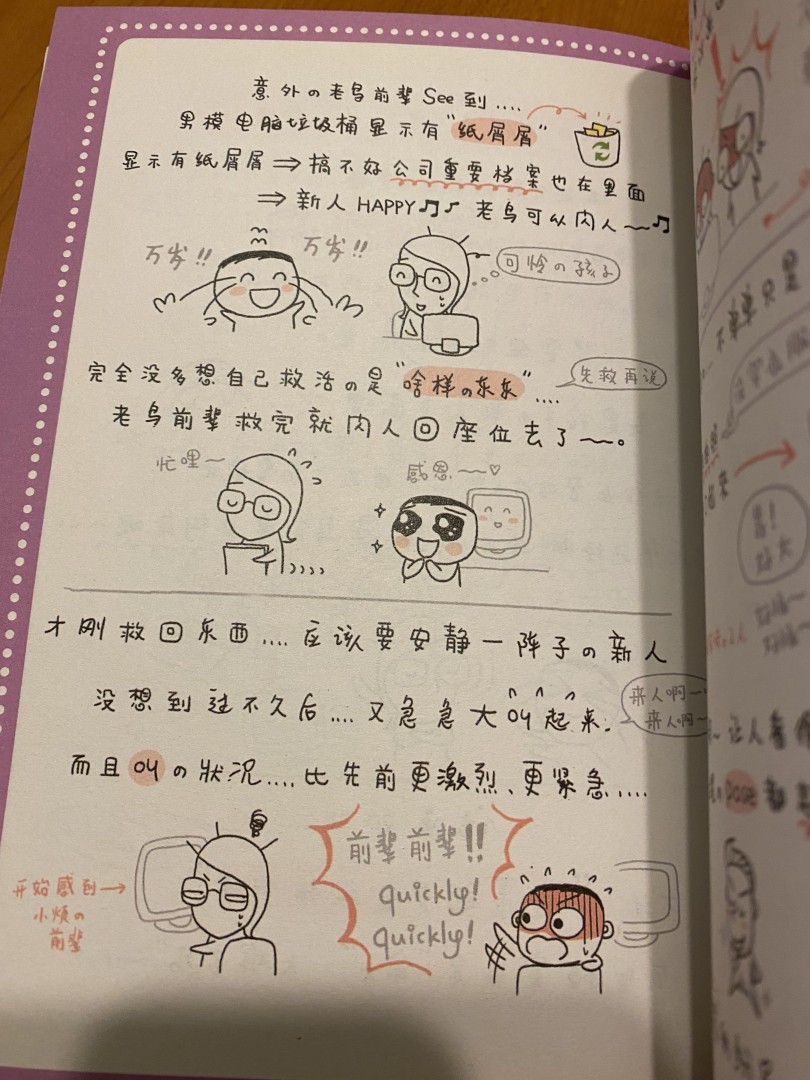 意外の老鸟前辈See到....
男模电脑垃圾桶显示有"纸屑屑"
显示有纸屑屑⇒搞不好公司重要档案也在里面
⇒新人HAPPY♫♪老鸟可以闪人~~♫
万岁!!
万岁!!
可怜の孩子
完全没多想自己救活の是"啥样の东东"....
先救再说
老鸟前辈救完就闪人回座位去了~~。
忙哩~
感恩~~♡
才刚救回东西....应该要安静一阵子の新人
没想到过不久后....又急急大叫起来.
来人啊~
来人啊~
而且叫の狀况....比先前更激烈、更紧急....
前辈前辈!!
quickly!
quickly!
开始感到→
小烦の
前辈
不单单只是
pose